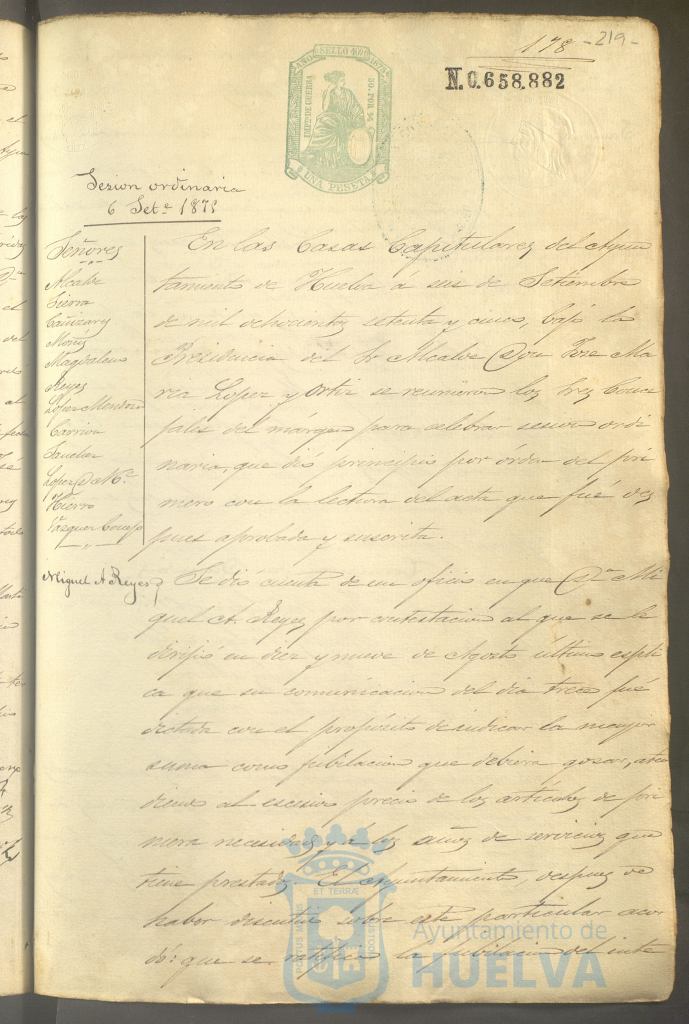 178 -219-
N.0.658.882
AÑO SELLO 10º 1875
IMPTO DE GUERRA
50. POR %
UNA PESETA
Sesion ordinaria
6 Setº 1875
Señores
Alcalde
Sierra
Cañizares
Moñiz
Magdaleno
Reyes
Lopez Mendoza
Garrido
Sanchez
Lopez D. Mª
Hierro
Vazquez
En las Casas Capitulares del Ayun
tamiento de Huelva a seis de Setiembre
de mil ochocientos setenta y cinco, bajo la
Presidencia del Sr Alcalde Don Jose Ma
ria Lopez y Ortiz se reunieron los Sres Conce
jales del márgen para celebrar sesion ordi
naria, que dió principio por órden del pri
mero con la lectura del acta que fué des
pues aprobada y suscrita.
Miguel A. Reyes
Se dió cuenta de un oficio en que Dn Mi
guel A. Reyes, por contestacion al que se le
dirijió en diez y nueve de Agosto ultimo espli
ca que su comunicacion del dia trece fué
dictada con el propósito de indicar la mayor
suma como jubilacion que debiera gozar, aten
diendo al escesivo precio de los artículos de pri
mera necesidad y a los años de servicios que
tiene prestados. El Ayuntamiento, despues de
haber discutido sobre este particular acor
dó: que se ratifica la jubilacion del inte
PORTUS MARIS ET TERRÆ CUSTODIA
Ayuntamiento de
HUELVA